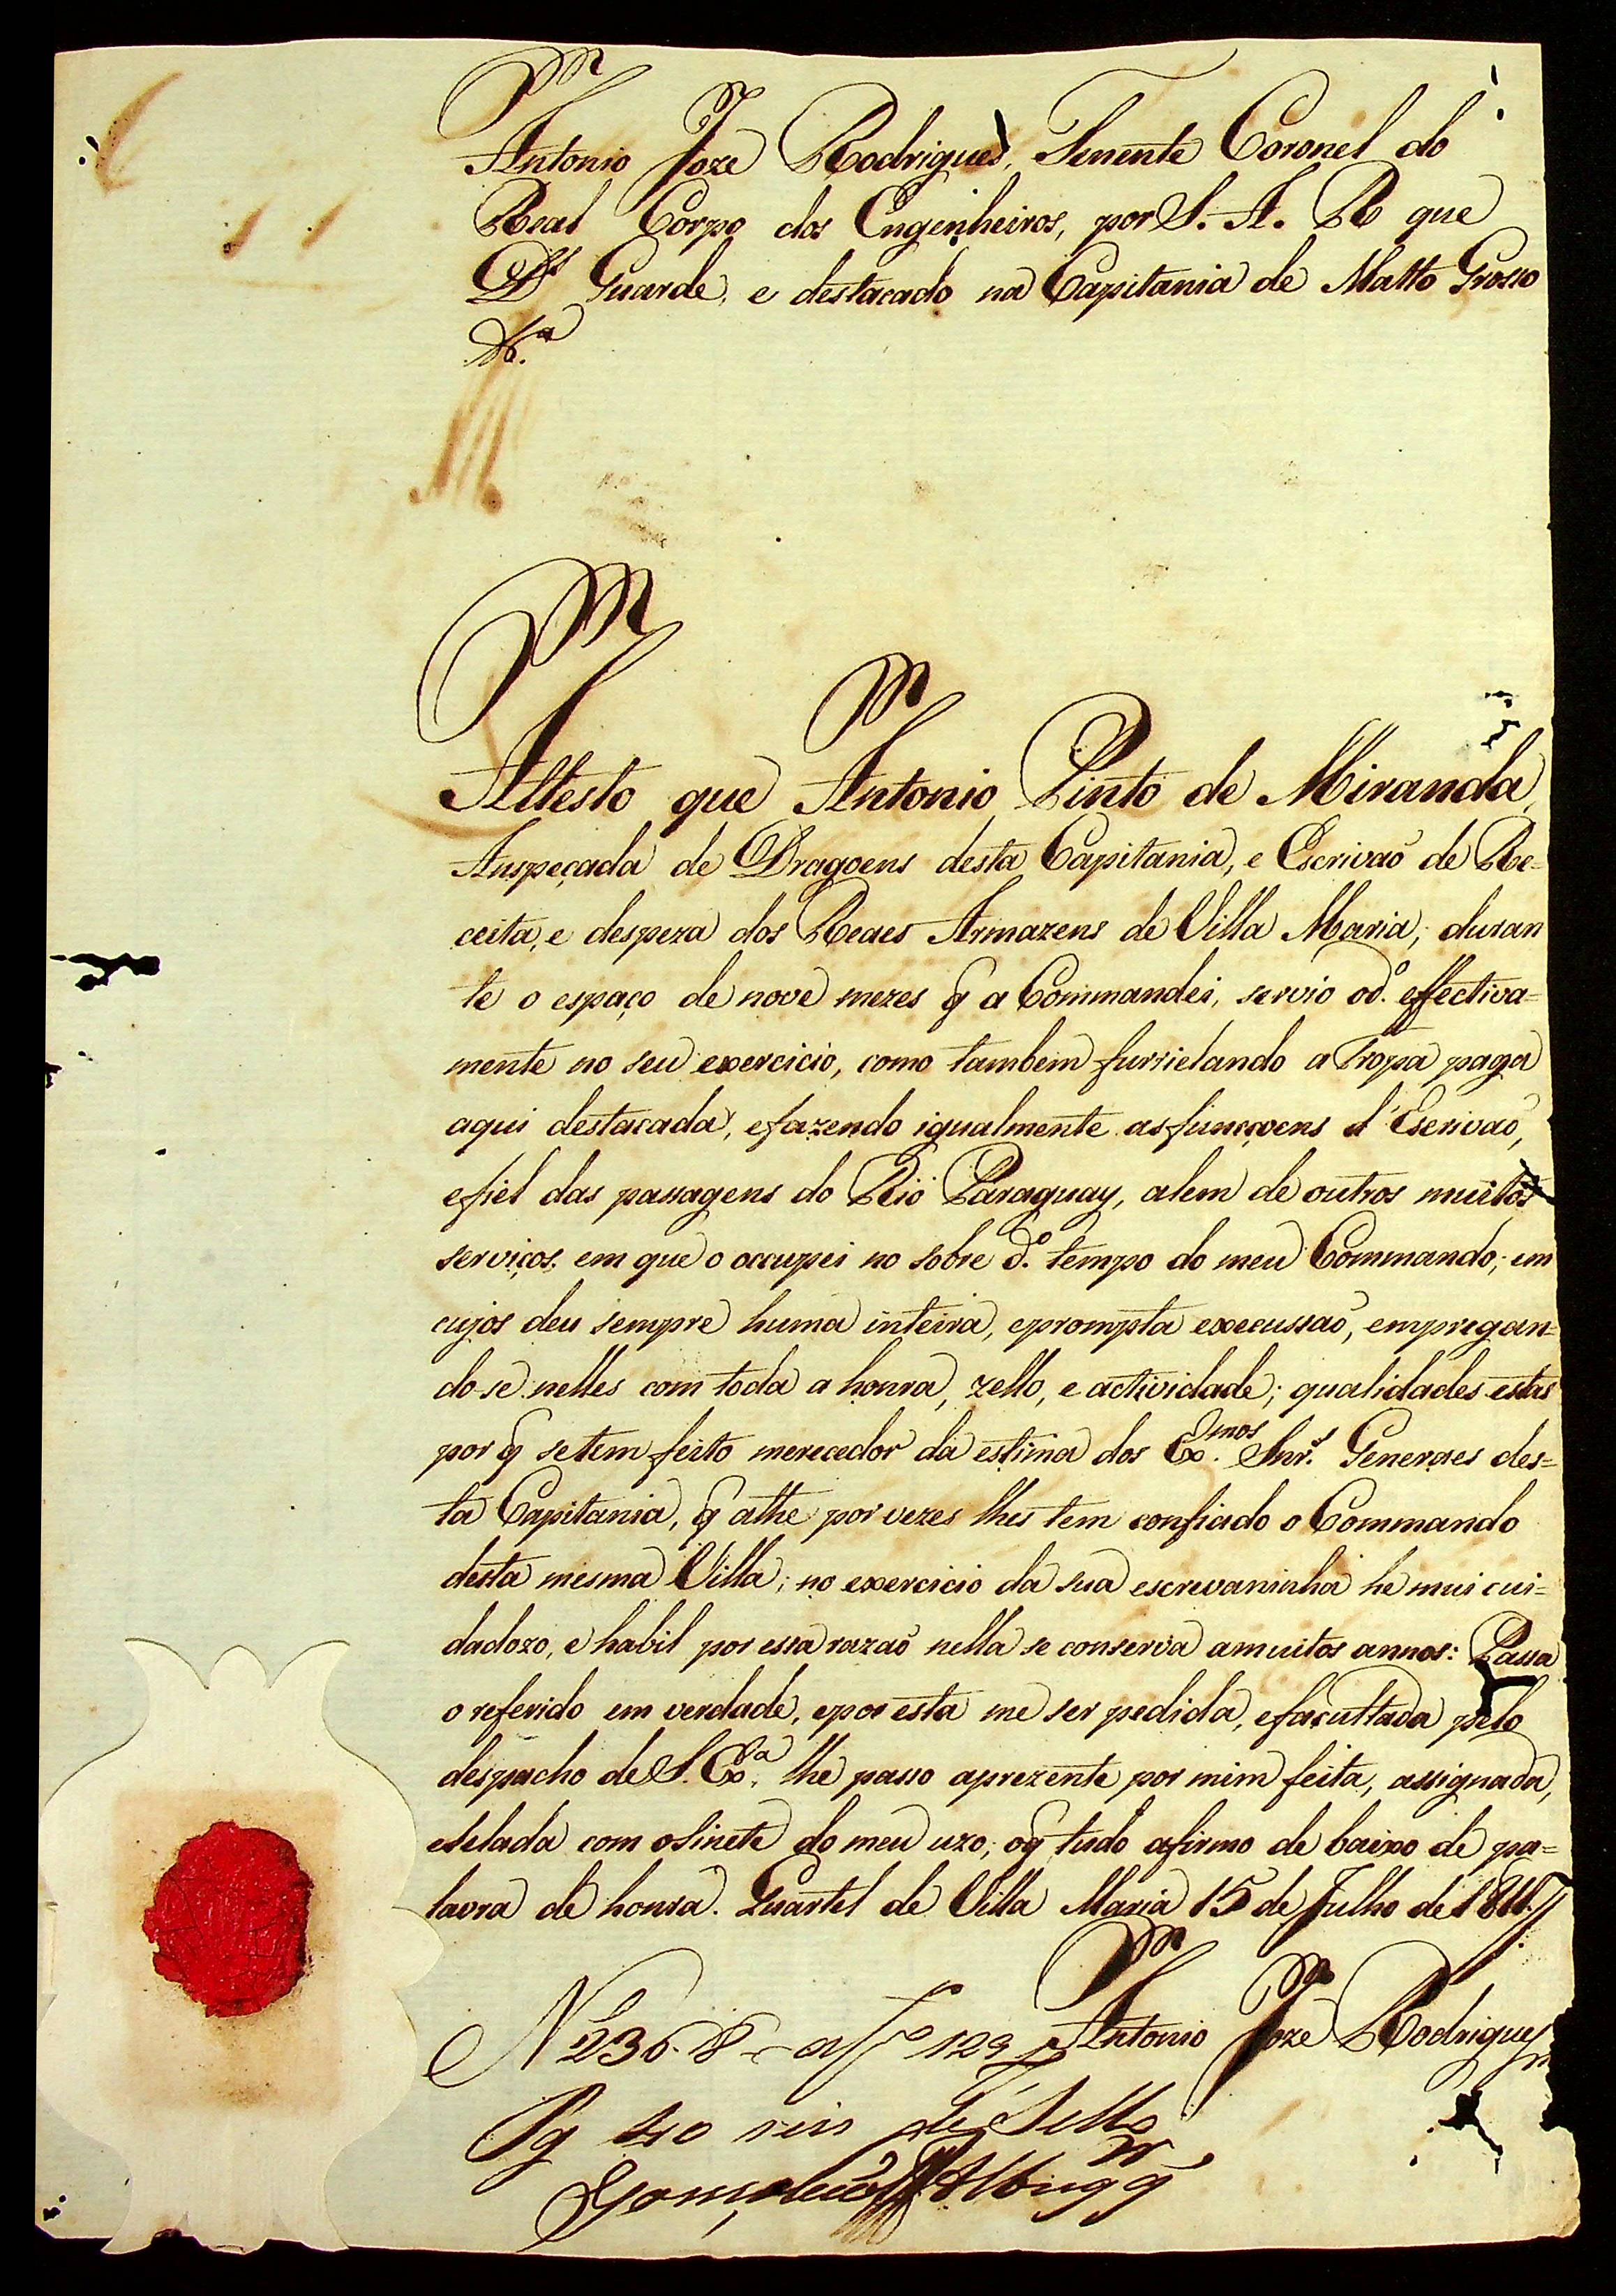 Antonio Joze Rodrigues, Tenente Coronel do
Real Corpo dos Engenheiros, por S. A. R que
Ds Guarde, e destacado na Capitania de Matto Grosso
&.a
Attesto que Antonio Pinto de Miranda,
Anspeçada de Dragoens desta Capitania, e Escrivaõ de Re=
ceita, e despeza dos Reaes Armazens de Villa Maria; duran
te o espaço de nove mezes q̃ a Commandei, servio o d.o effectiva=
mente no seu exercicio, como tambem furrielando a Tropa paga
aqui destacada, efazendo igualmente asfuncçoens d'Escrivaõ,
efiel das passagens do Rio Paraguay, alem de outros muitos
serviços, em que o occupei no sobre d.o tempo do meu Commando; em
cujos deu sempre huma inteira, eprompta execussaõ, empregan=
do-se nelles com toda a honra, zello, e actividade; qualidades estas
por q̃ setem feito merecedor da estima dos Ex.mos Snr.s Generaes des=
ta Capitania, q̃ athe por vezes lhes tem confiado o Commando
desta mesma Villa; no exercicio da sua escrevaninha he mui cui=
dadozo, e habil por essa razaõ nella se conserva amuitos annos: Passa
o referido em verdade, epor esta me ser pedida, efacultada pelo
despacho de S. Ex.a, lhe passo aprezente por mim feita, assignada,
eselada com osinete do meu uzo; oq̃ tudo afirmo de baixo de pa=
lavra de honra. Quartel de Villa Maria 15 de Julho de 1811
Antonio Joze Rodrigues
N 236.8 a f 129
Pg 40 reis de Sello